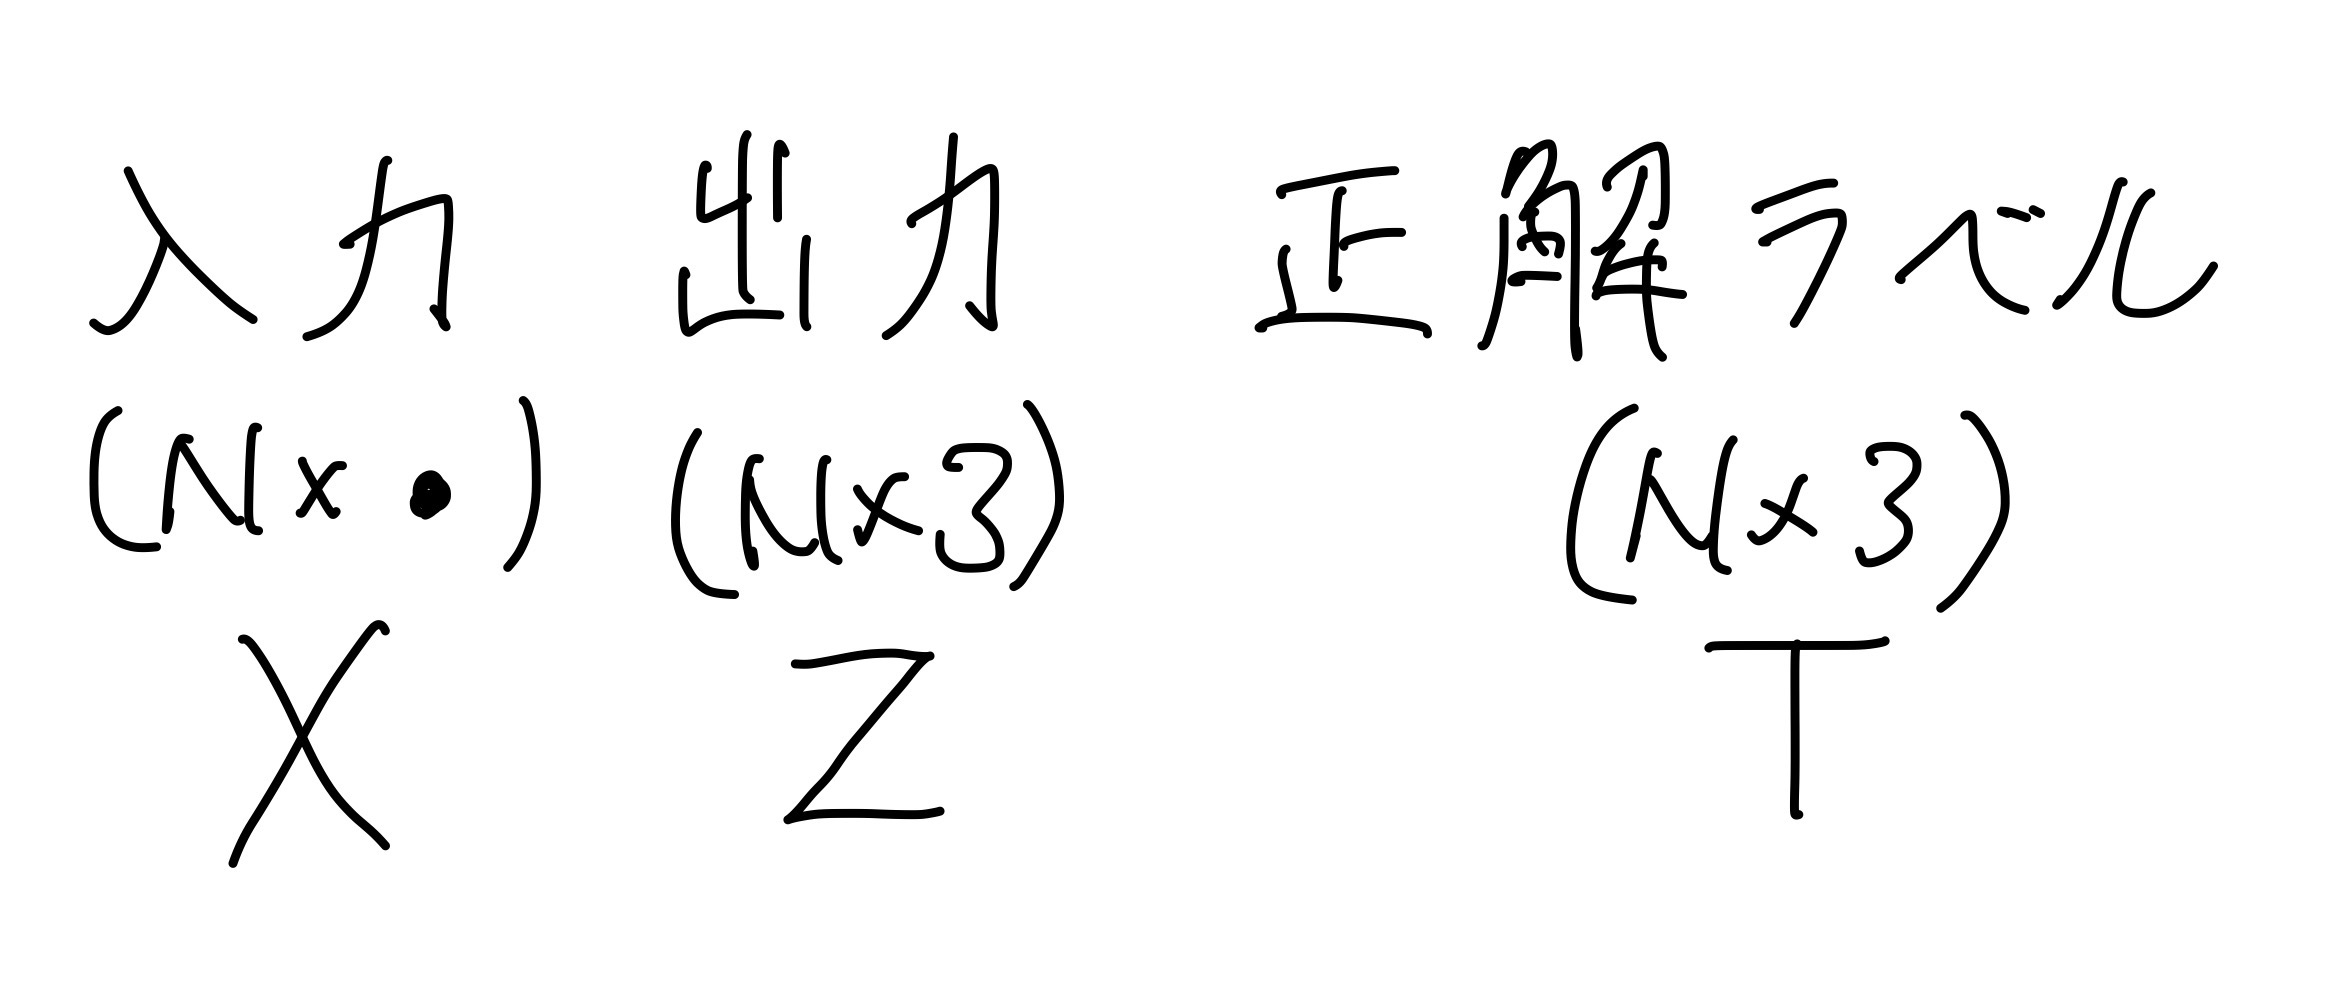 入力 出力 正解ラベル
(N×●) (N×3) (N×3)
X Z T